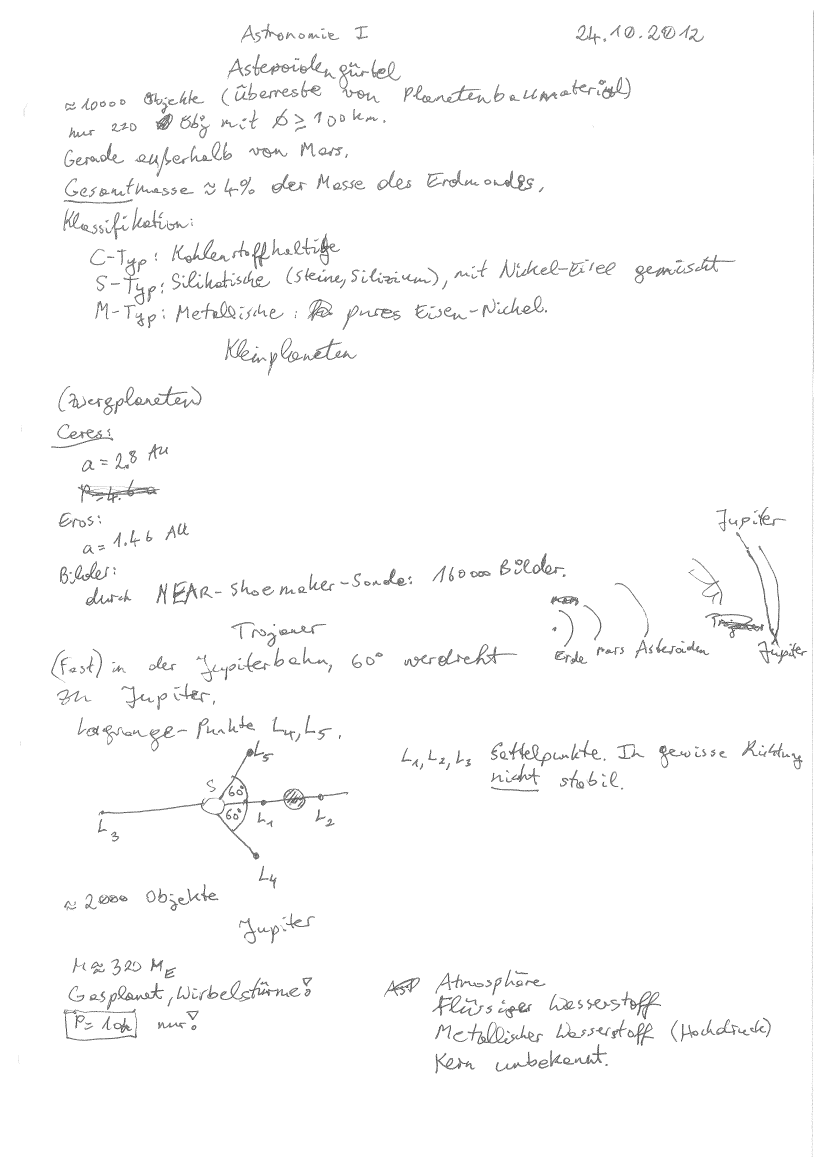 Astronomie I 24.10.2012
Asteroidengürtel
≈ 10000 Objekte (Überreste von Planetenbaumaterial)
nur 220 Obj mit ∅ ≥ 100 km.
Gerade außerhalb von Mars.
Gesamtmasse ≈ 4% der Masse des Erdmondes.
Klassifikation:
C-Typ: Kohlenstoffhaltige
S-Typ: Silikatische (Steine, Silizium), mit Nickel-Eisel gemischt
M-Typ: Metallische: pures Eisen-Nickel.
Kleinplaneten
(Zwergplaneten)
Ceres:
a = 2.8 AU
P=4.6 a
Eros:
a = 1.46 AU
Bilder:
durch NEAR-Shoemaker-Sonde: 160000 Bilder.
Jupiter
Trojaner
Erde Mars Asteroiden Jupiter
Trojaner
(Fast) in der Jupiterbahn, 60° verdreht
zu Jupiter.
Lagrange-Punkte L4, L5.
L5
S 60°
60°
L3 L1 L2
L4
L1, L2, L3 Sattelpunkte. In gewisse Richtung
nicht stabil.
≈ 2000 Objekte
Jupiter
M ≈ 320 ME
Gasplanet, Wirbelstürme!
P = 10h nur!
Atmosphäre
Flüssiger Wasserstoff
Metallischer Wasserstoff (Hochdruck)
Kern unbekannt.